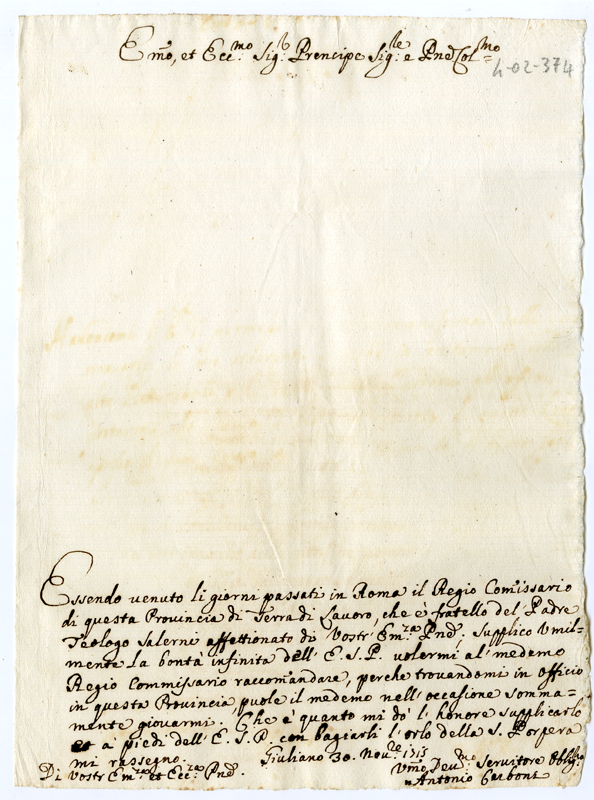 Emo, et Ecc:mo Sig:r Prencipe Sig:re e Pne Col:mo
4-02-374
Essendo venuto li giorni passati in Roma il Regio Comissario
di questa Provincia di Terra di Lavoro, che è fratello del Padre
Teologo Salerni affettionato di Vostr' Em:za Pne. Supplico Umil-
mente la bontà infinita dell' E. S. P. volermi al' medemo
Regio Commissario raccomandare, perche trovandomi in officio
in questa Provincia, puole il medemo nell' occasione somma=
mente giovarmi. Che è quanto mi dò l' honore supplicarlo
à piedi dell' E. S. P. con bagiarli l' orlo della S. Porpora
mi rassegno. Giuliano 30. Nov:re 1715
Di Vostr' Em:za et Ecc:za Pne. Umo Dev:mo Servitore Oblig:mo
Antonio Carboni